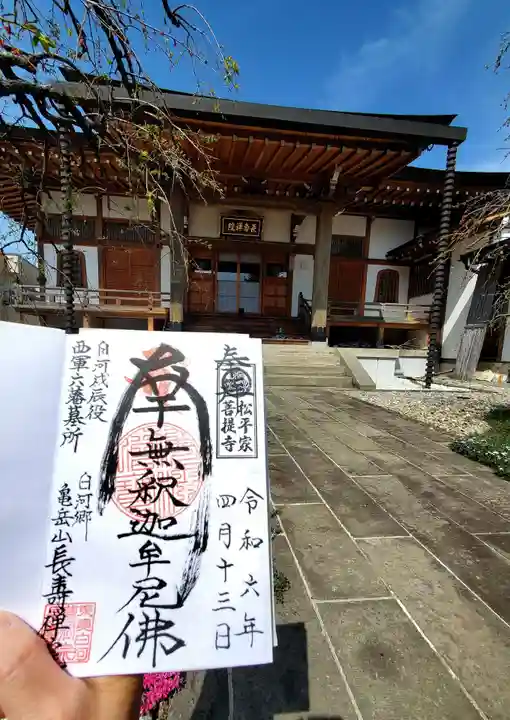 長壽禅院
奉拝
松平家
菩提寺
令和六年
四月十三日
南無釈迦牟尼佛
白河戊辰役
西軍六藩墓所
白河郷
亀岳山長壽禅